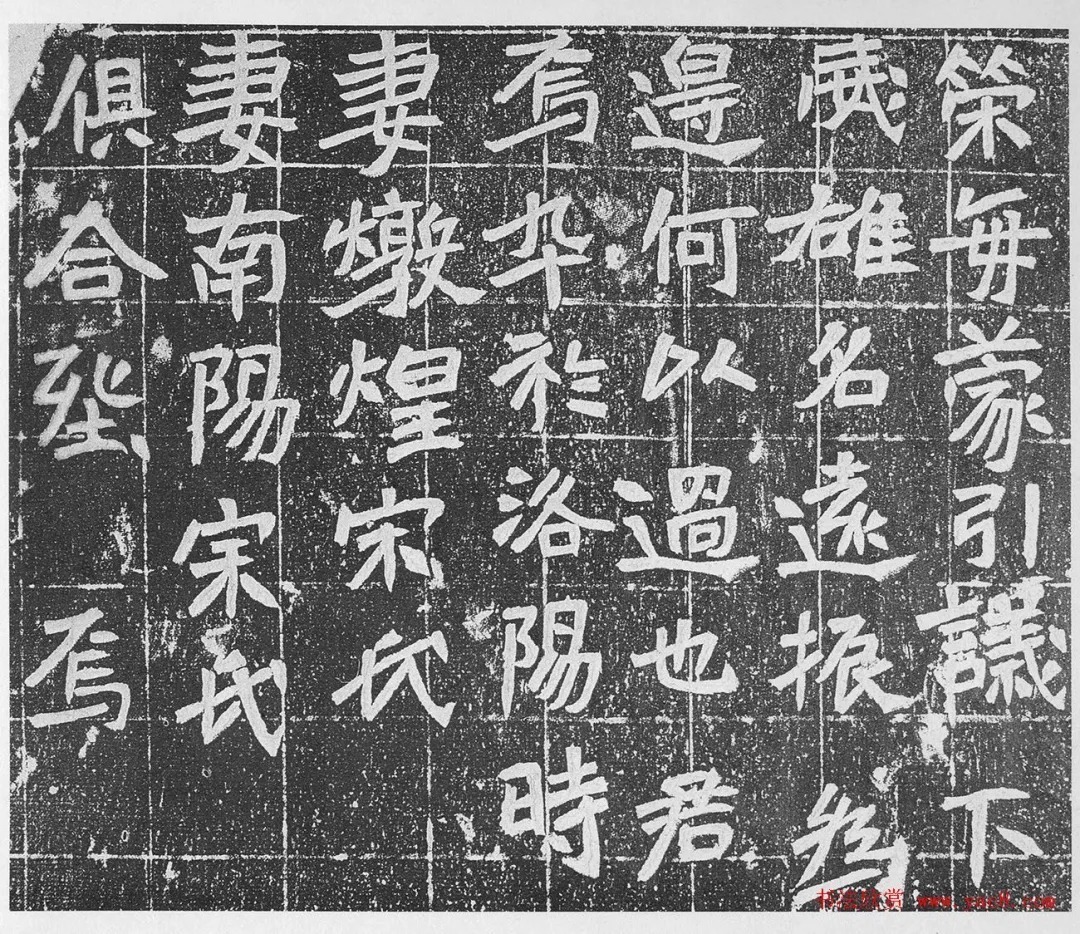 榮每蒙引議下
威雄名遠振
何以過也君
焉卒於洛陽時
妻燉煌宋氏
妻南陽宋氏
俱合塟焉
书法欣赏 www.yac8.com